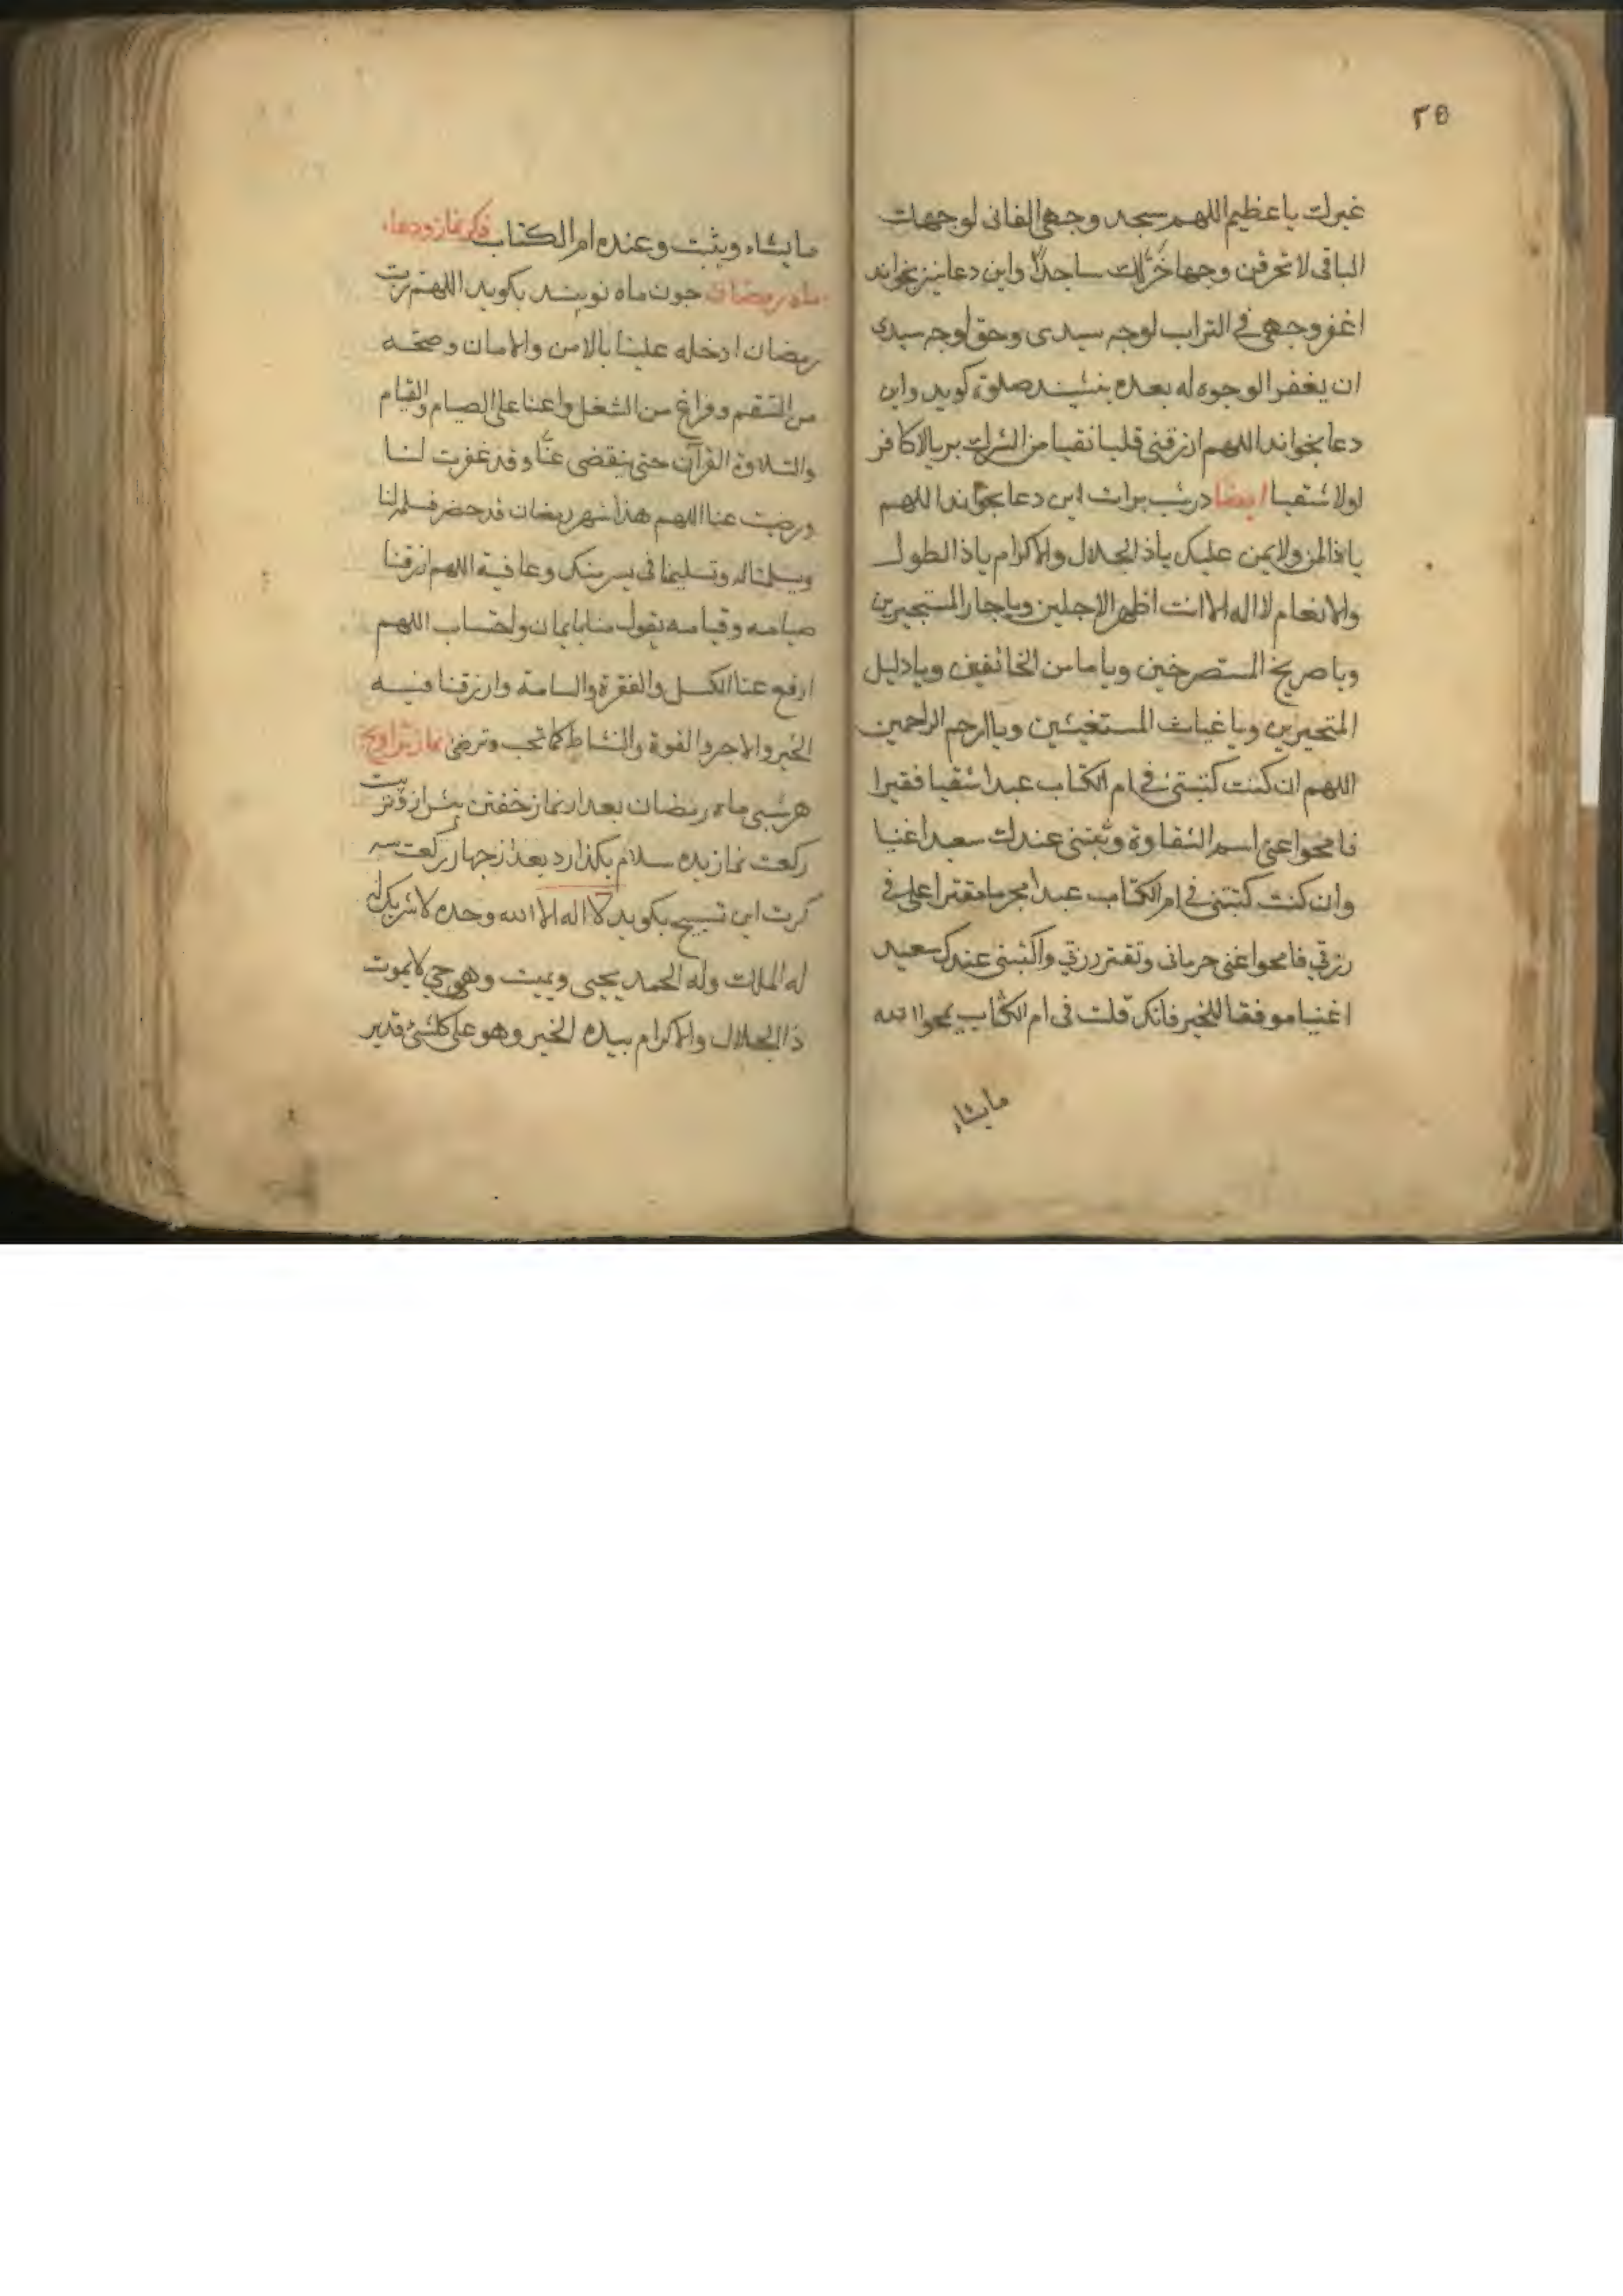 ۳۵
غیرك یا عظیم اللهم سجد وجهی الفانی لوجهك
الباقی لا تحرقن وجها خرّ لك ساجداً واین دعا نیز بخواند
اغفر وجهی فی التراب لوجه سیدی وحق لوجه سیدی
ان یغفر الوجوه له بعده بنشیند صلوة کوید واین
دعا بخواند اللهم ارزقنی قلبا نقیا من الشرك بریا لا کافر
لولا شقیا ایضا در شب برات این دعا بخواند اللهم
یا ذا المن ولا یمن علیک یا ذا الجلال والاکرام یا ذا الطول
والانعام لا اله الا انت اظهر الاجلین ویا جار المستجیرین
ویا صریخ المستصرخین ویا مامن الخائفین ویا دلیل
المتحیرین ویا غیاث المستغیثین ویا ارحم الراحمین
اللهم ان کنت کتبتنی فی ام الکتاب عبدا شقیا فقیرا
فامحوا عنی اسم الشقاوة وثبتنی عندك سعیدا غنیا
وان کنت کتبتنی فی ام الکتاب عبدا مجرما مقترا علی فی
رزقی فامحوا عنی حرمانی وتقتر رزقی واکتبنی عندک سعید
اغنیا موفقا للخیر فانک قلت فی ام الکتاب یمحوا الله
مایشاء
مایشاء ویثبت وعنده ام الکتاب ذکر نماز ودعاء
ماه رمضان جون ماه نو بیند بکوید اللهم رب
رمضان ادخله علینا بالامن والامان وصحة
من السقم وفراغ من الشغل واعنا علی الصیام والقیام
والتلاوة القرآن حتی ینقضی عنّا وقد غفرت لنا
ورضیت عنا اللهم هذا شهر رمضان قد حضر فسلم لنا
وسلمنا له وتسلیما فی یسر منک وعافیة اللهم ارزقنا
صیامه وقیامه بقول منا بایمان واحتساب اللهم
ارفع عنا الکسل والفقرة والسامة وارزقنا فیه
الخیر والاجر والقوة والنشاط کما تحب وترضی نماز تراویح
هر شبی ماه رمضان بعد از نماز خفتن بیش از وتر بیست
رکعت نماز بده سلام بکذارد بعد از جهار رکعت سه
کرت این تسبیح بکوید لا اله الا الله وحده لا شریک له
له الملك وله الحمد یحیی ویمیت وهو حی لا یموت
ذا الجلال والاکرام بیده الخیر وهو علی کل شئ قدیر